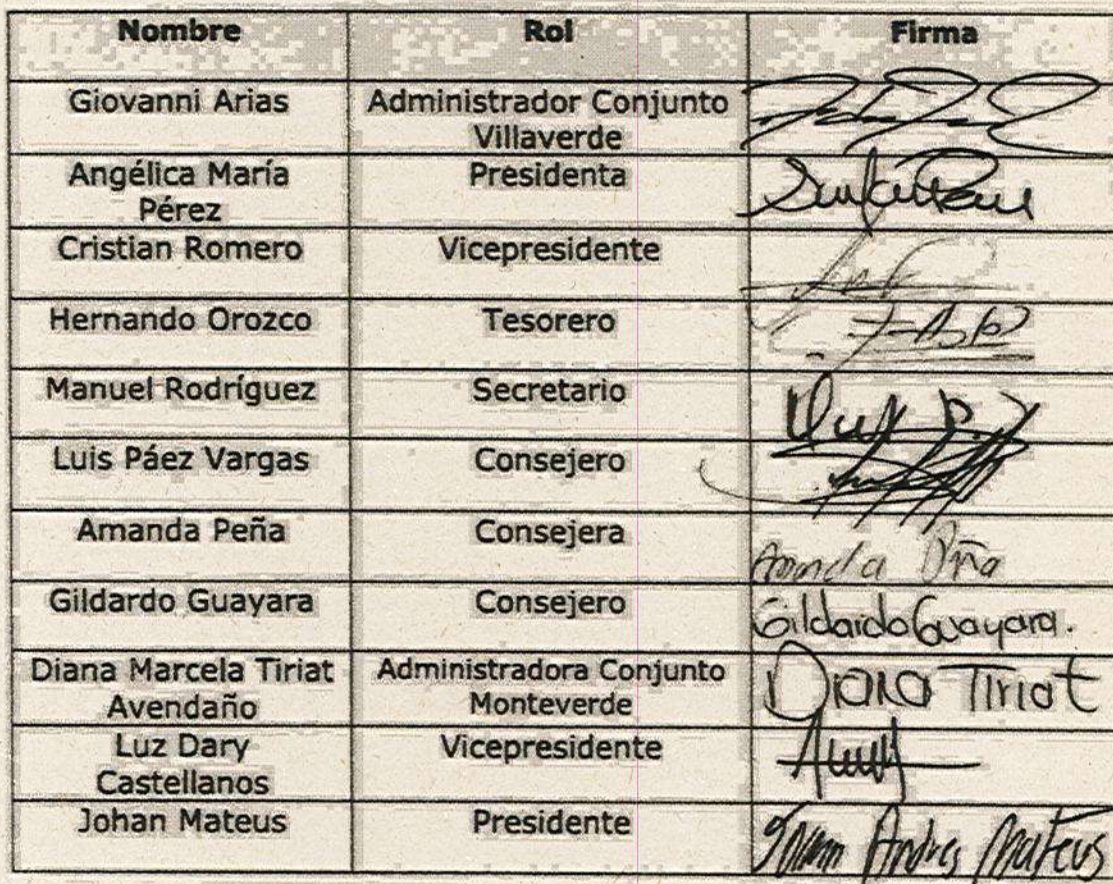 Nombre Rol Firma
Giovanni Arias Administrador Conjunto
Villaverde
Angélica María Presidenta
Pérez
Cristian Romero Vicepresidente
Hernando Orozco Tesorero
Manuel Rodríguez Secretario
Luis Páez Vargas Consejero
Amanda Peña Consejera
Amanda
Gildardo Guayara Consejero
Gildardo Guayara.
Diana Marcela Tiriat Administradora Conjunto Diana Tiriat
Avendaño Monteverde
Luz Dary Vicepresidente
Castellanos
Johan Mateus Presidente
Andres Mateus